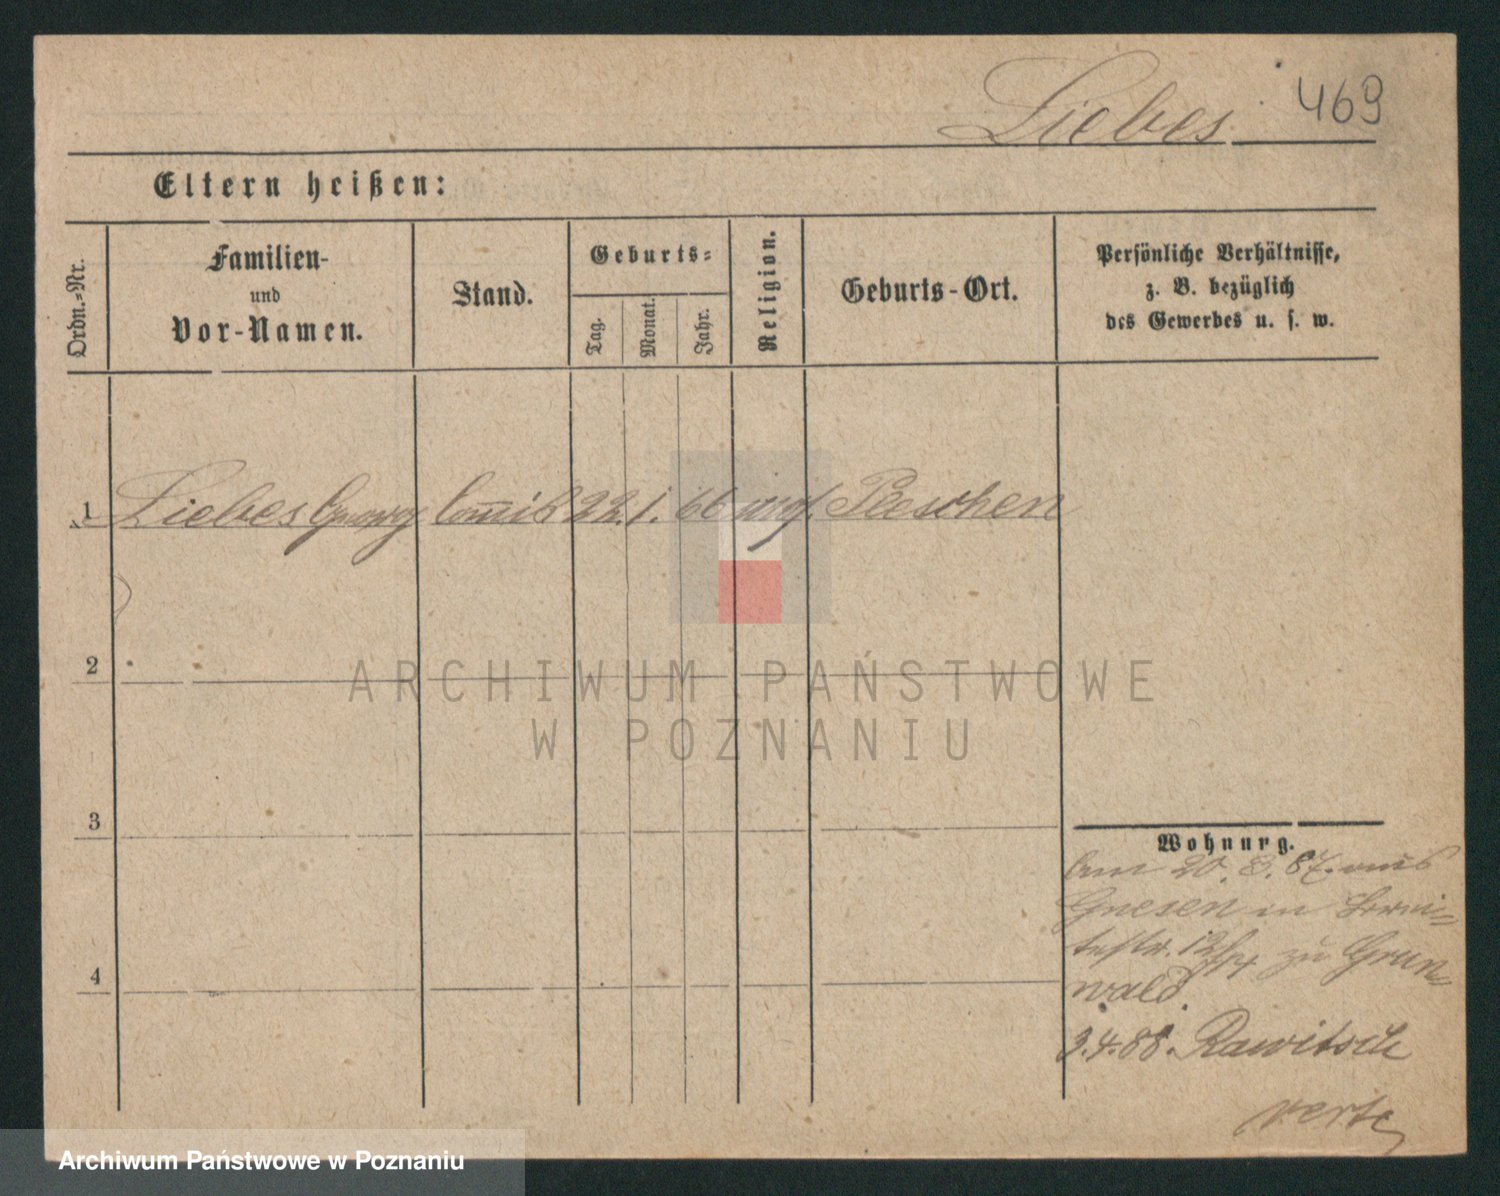 Liebes. 469
Eltern heißen:
Ordn.=Nr.
Familien-
und
Vor-Namen.
Stand.
Geburts=
Tag.
Monat.
Jahr.
Religion.
Geburts-Ort.
Persönliche Verhältnisse,
z. B. bezüglich
des Gewerbes u. s. w.
1 Liebes Georg 22. 1. 66 mos. Pleschen
2
ARCHIWUM PAŃSTWOWE
W POZNANIU
3
Wohnung.
20. 8. 87. aus
Gnesen in
12 zu Grun=
wald.
3.4.88. Rawitsch
4
verte
Archiwum Państwowe w Poznaniu